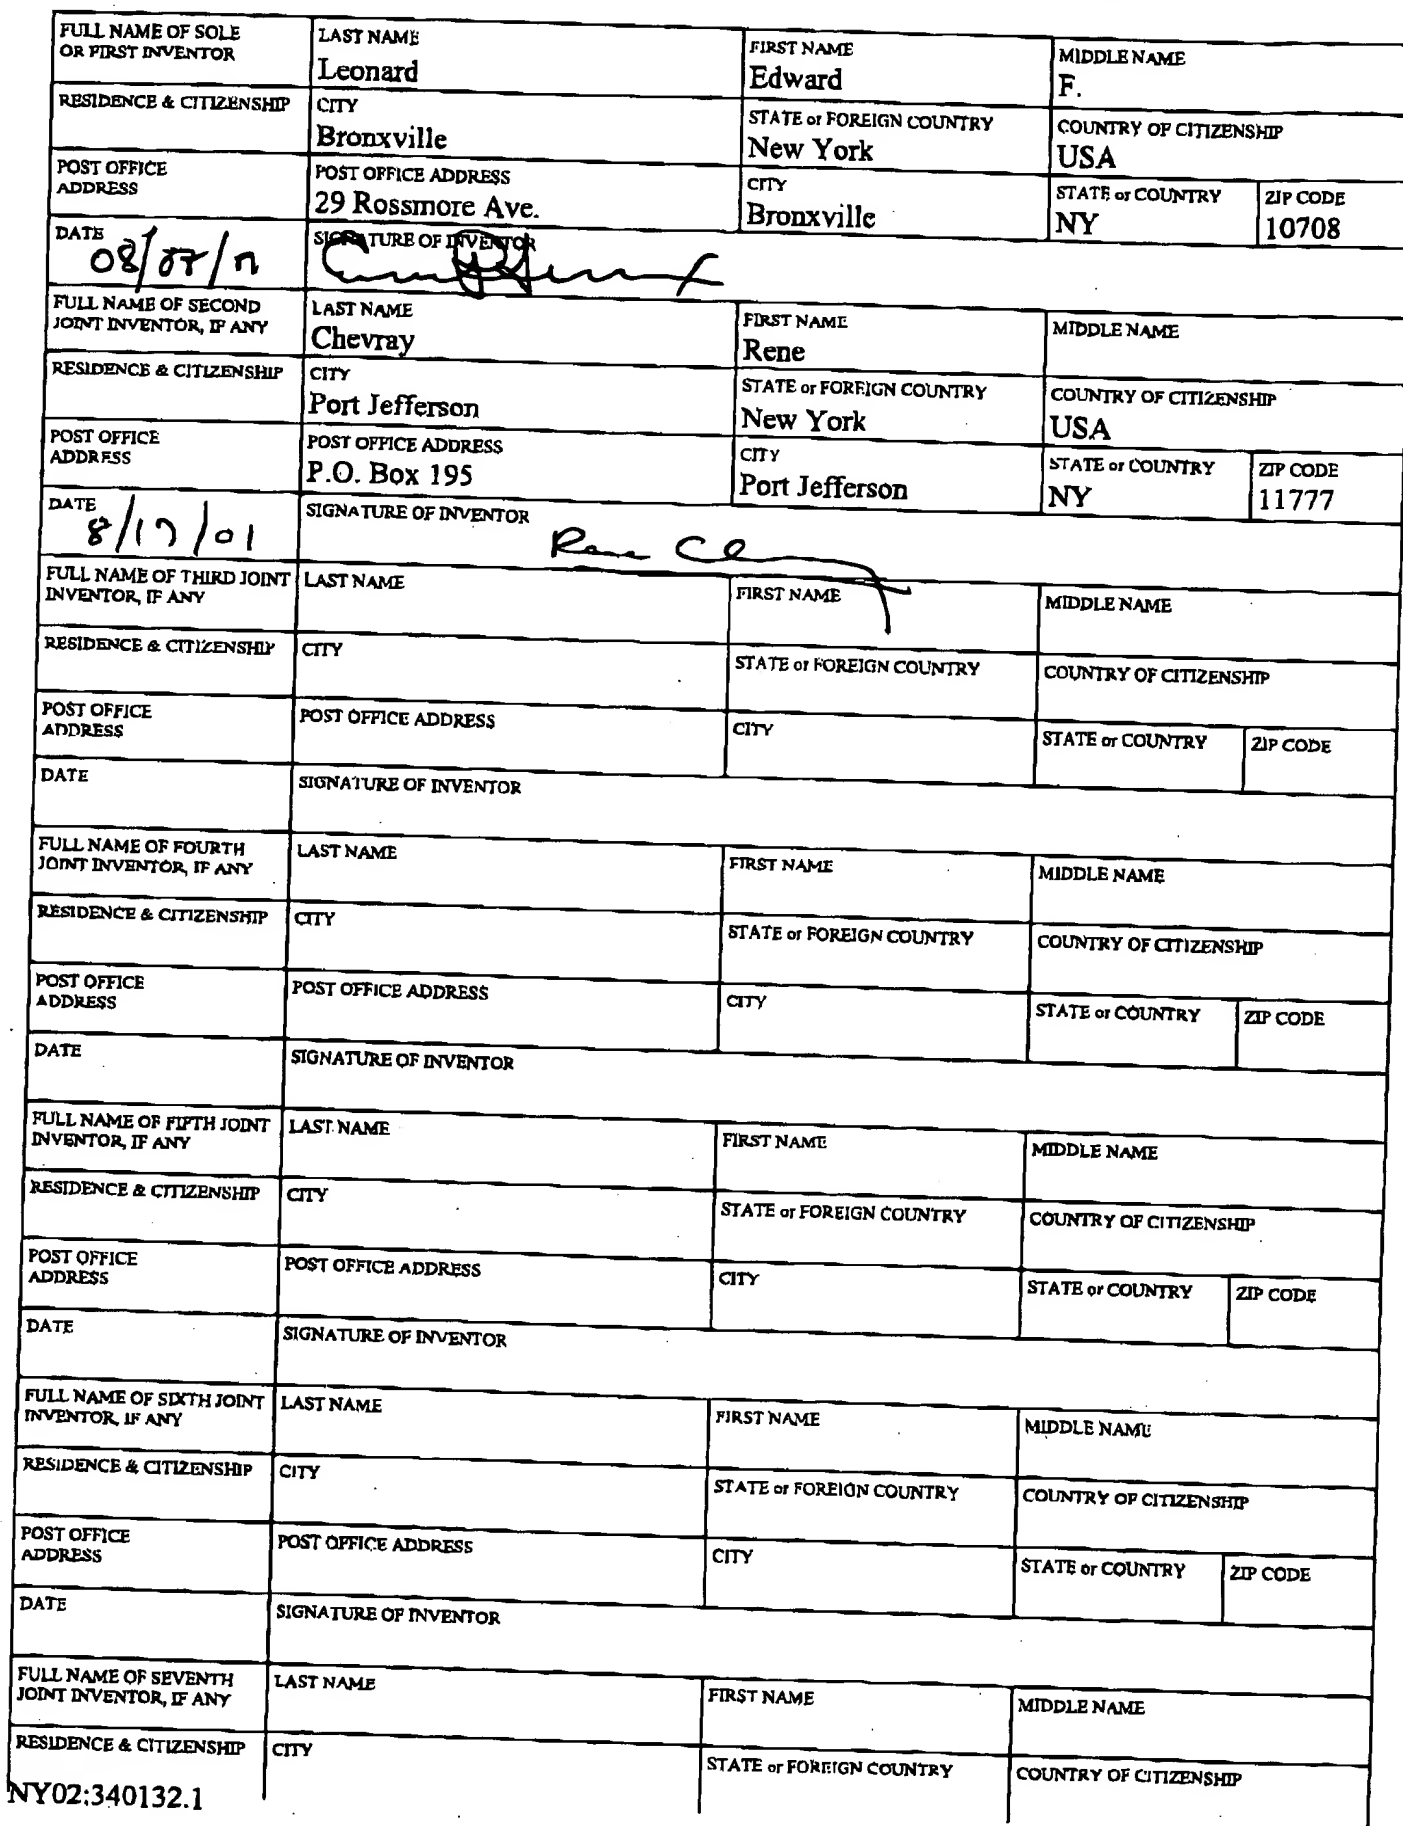 FULL NAME OF SOLE
OR FIRST INVENTOR
LAST NAME
Leonard
FIRST NAME
Edward
MIDDLE NAME
F.
RESIDENCE & CITIZENSHIP
CITY
Bronxville
STATE or FOREIGN COUNTRY
New York
COUNTRY OF CITIZENSHIP
USA
POST OFFICE
ADDRESS
POST OFFICE ADDRESS
29 Rossmore Ave.
CITY
Bronxville
STATE or COUNTRY
NY
ZIP CODE
10708
DATE
SIGNATURE OF INVENTOR
FULL NAME OF SECOND
JOINT INVENTOR, IF ANY
LAST NAME
Chevray
FIRST NAME
Rene
MIDDLE NAME
RESIDENCE & CITIZENSHIP
CITY
Port Jefferson
STATE or FOREIGN COUNTRY
New York
COUNTRY OF CITIZENSHIP
USA
POST OFFICE
ADDRESS
POST OFFICE ADDRESS
P.O. Box 195
CITY
Port Jefferson
STATE or COUNTRY
NY
ZIP CODE
11777
DATE
8/17/01
SIGNATURE OF INVENTOR
FULL NAME OF THIRD JOINT
INVENTOR, IF ANY
LAST NAME
FIRST NAME
MIDDLE NAME
RESIDENCE & CITIZENSHIP
CITY
STATE or FOREIGN COUNTRY
COUNTRY OF CITIZENSHIP
POST OFFICE
ADDRESS
POST OFFICE ADDRESS
CITY
STATE or COUNTRY
ZIP CODE
DATE
SIGNATURE OF INVENTOR
FULL NAME OF FOURTH
JOINT INVENTOR, IF ANY
LAST NAME
FIRST NAME
MIDDLE NAME
RESIDENCE & CITIZENSHIP
CITY
STATE or FOREIGN COUNTRY
COUNTRY OF CITIZENSHIP
POST OFFICE
ADDRESS
POST OFFICE ADDRESS
CITY
STATE or COUNTRY
ZIP CODE
DATE
SIGNATURE OF INVENTOR
FULL NAME OF FIFTH JOINT
INVENTOR, IF ANY
LAST NAME
FIRST NAME
MIDDLE NAME
RESIDENCE & CITIZENSHIP
CITY
STATE or FOREIGN COUNTRY
COUNTRY OF CITIZENSHIP
POST OFFICE
ADDRESS
POST OFFICE ADDRESS
CITY
STATE or COUNTRY
ZIP CODE
DATE
SIGNATURE OF INVENTOR
FULL NAME OF SIXTH JOINT
INVENTOR, IF ANY
LAST NAME
FIRST NAME
MIDDLE NAME
RESIDENCE & CITIZENSHIP
CITY
STATE or FOREIGN COUNTRY
COUNTRY OF CITIZENSHIP
POST OFFICE
ADDRESS
POST OFFICE ADDRESS
CITY
STATE or COUNTRY
ZIP CODE
DATE
SIGNATURE OF INVENTOR
FULL NAME OF SEVENTH
JOINT INVENTOR, IF ANY
LAST NAME
FIRST NAME
MIDDLE NAME
RESIDENCE & CITIZENSHIP
CITY
STATE or FOREIGN COUNTRY
COUNTRY OF CITIZENSHIP
NY02:340132.1